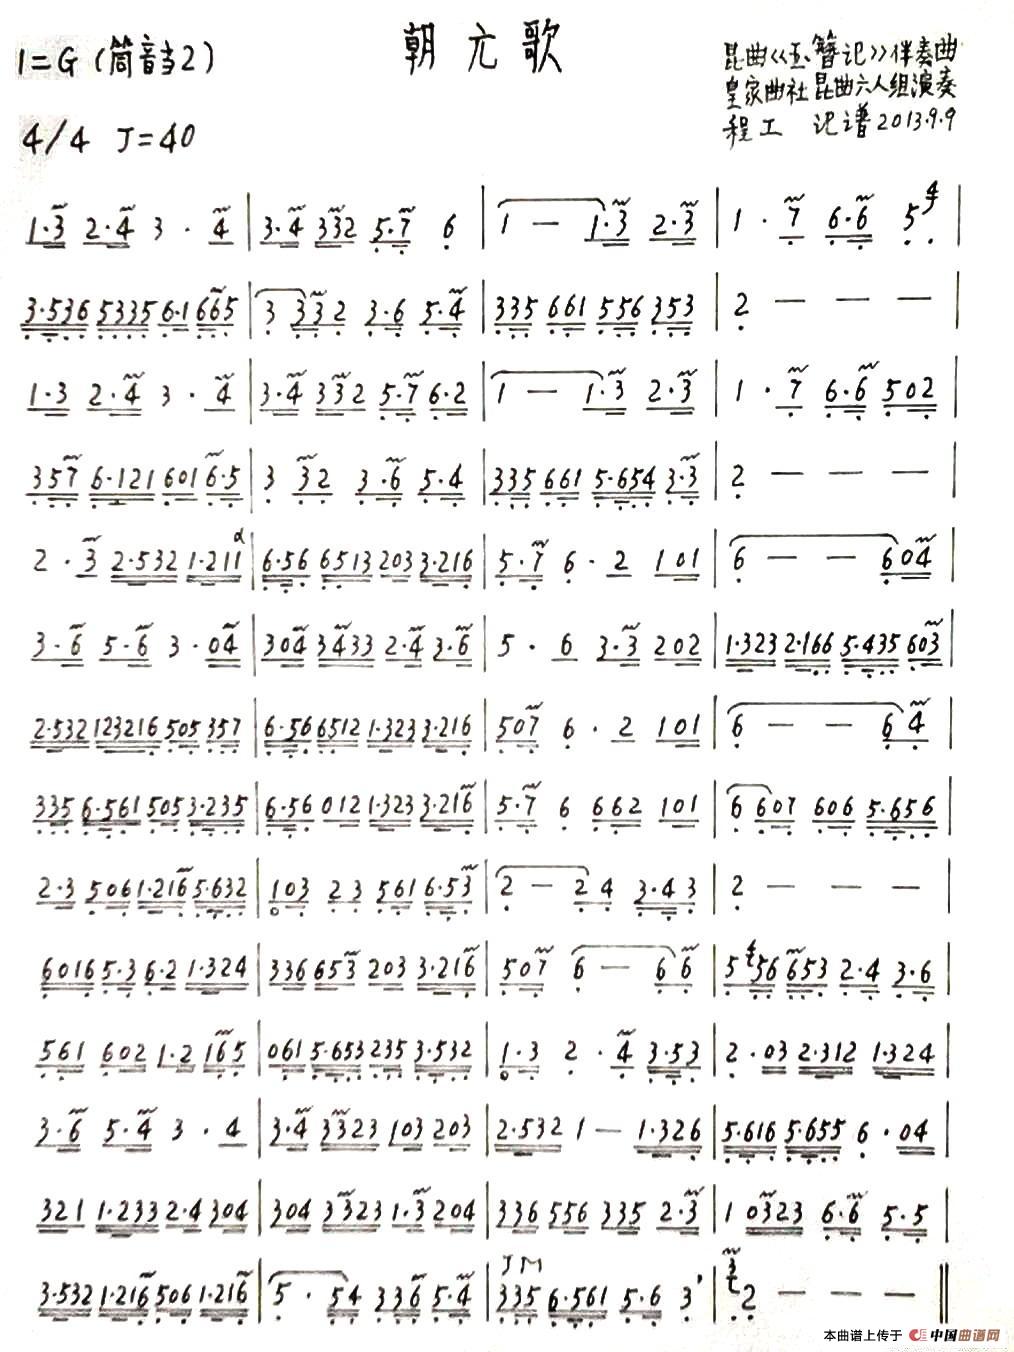 朝元歌
1=G（筒音当2）
4/4 J=40
昆曲《玉簪记》伴奏曲
皇家曲社昆曲六人组演奏
程工 记谱2013.9.9
1·3 2·4 3 · 4 | 3·4 332 5·7 6 | 1 — 1·3 2·3 | 1 · 7 6·6 5 |
3·536 5335 6·1 665 | 3 332 3·6 5·4 | 335 661 556 353 | 2 — — — |
1·3 2·4 3 · 4 | 3·4 332 5·7 6·2 | 1 — 1·3 2·3 | 1 · 7 6·6 502 |
357 6·121 601 6·5 | 3 32 3·6 5·4 | 335 661 5·654 3·3 | 2 — — — |
2 · 3 2·532 1·211 | 6·56 6513 203 3·216 | 5·7 6 · 2 101 | 6 — — 604 |
3·6 5·6 3 · 04 | 304 3433 2·4 3·6 | 5 · 6 3·3 202 | 1·323 2·166 5·435 603 |
2·532 123216 505 357 | 6·56 6512 1·323 3·216 | 507 6 · 2 101 | 6 — — 64 |
335 6·561 505 3·235 | 6·56 012 1·323 3·216 | 5·7 6 662 101 | 6 607 606 5·656 |
2·3 506 1·216 5·632 | 103 23 561 6·53 | 2 — 24 3·43 | 2 — — — |
6016 5·3 6·2 1·324 | 336 653 203 3·216 | 507 6 — 66 | 5 56 653 2·4 3·6 |
561 602 1·2 165 | 061 5·653 235 3·532 | 1·3 2 · 4 3·53 | 2 · 03 2·312 1·324 |
3·6 5·4 3 · 4 | 3·4 3323 103 203 | 2·532 1 — 1·326 | 5·616 5·655 6 · 04 |
321 1·233 2·4 304 | 304 3323 1·3 204 | 336 556 335 2·3 | 1 0323 6·6 5·5 |
3·532 1·216 506 1·216 | 5 · 54 336 5·4 | 335 6·561 5·6 3 | 2 — — — ‖
本曲谱上传于 中国曲谱网